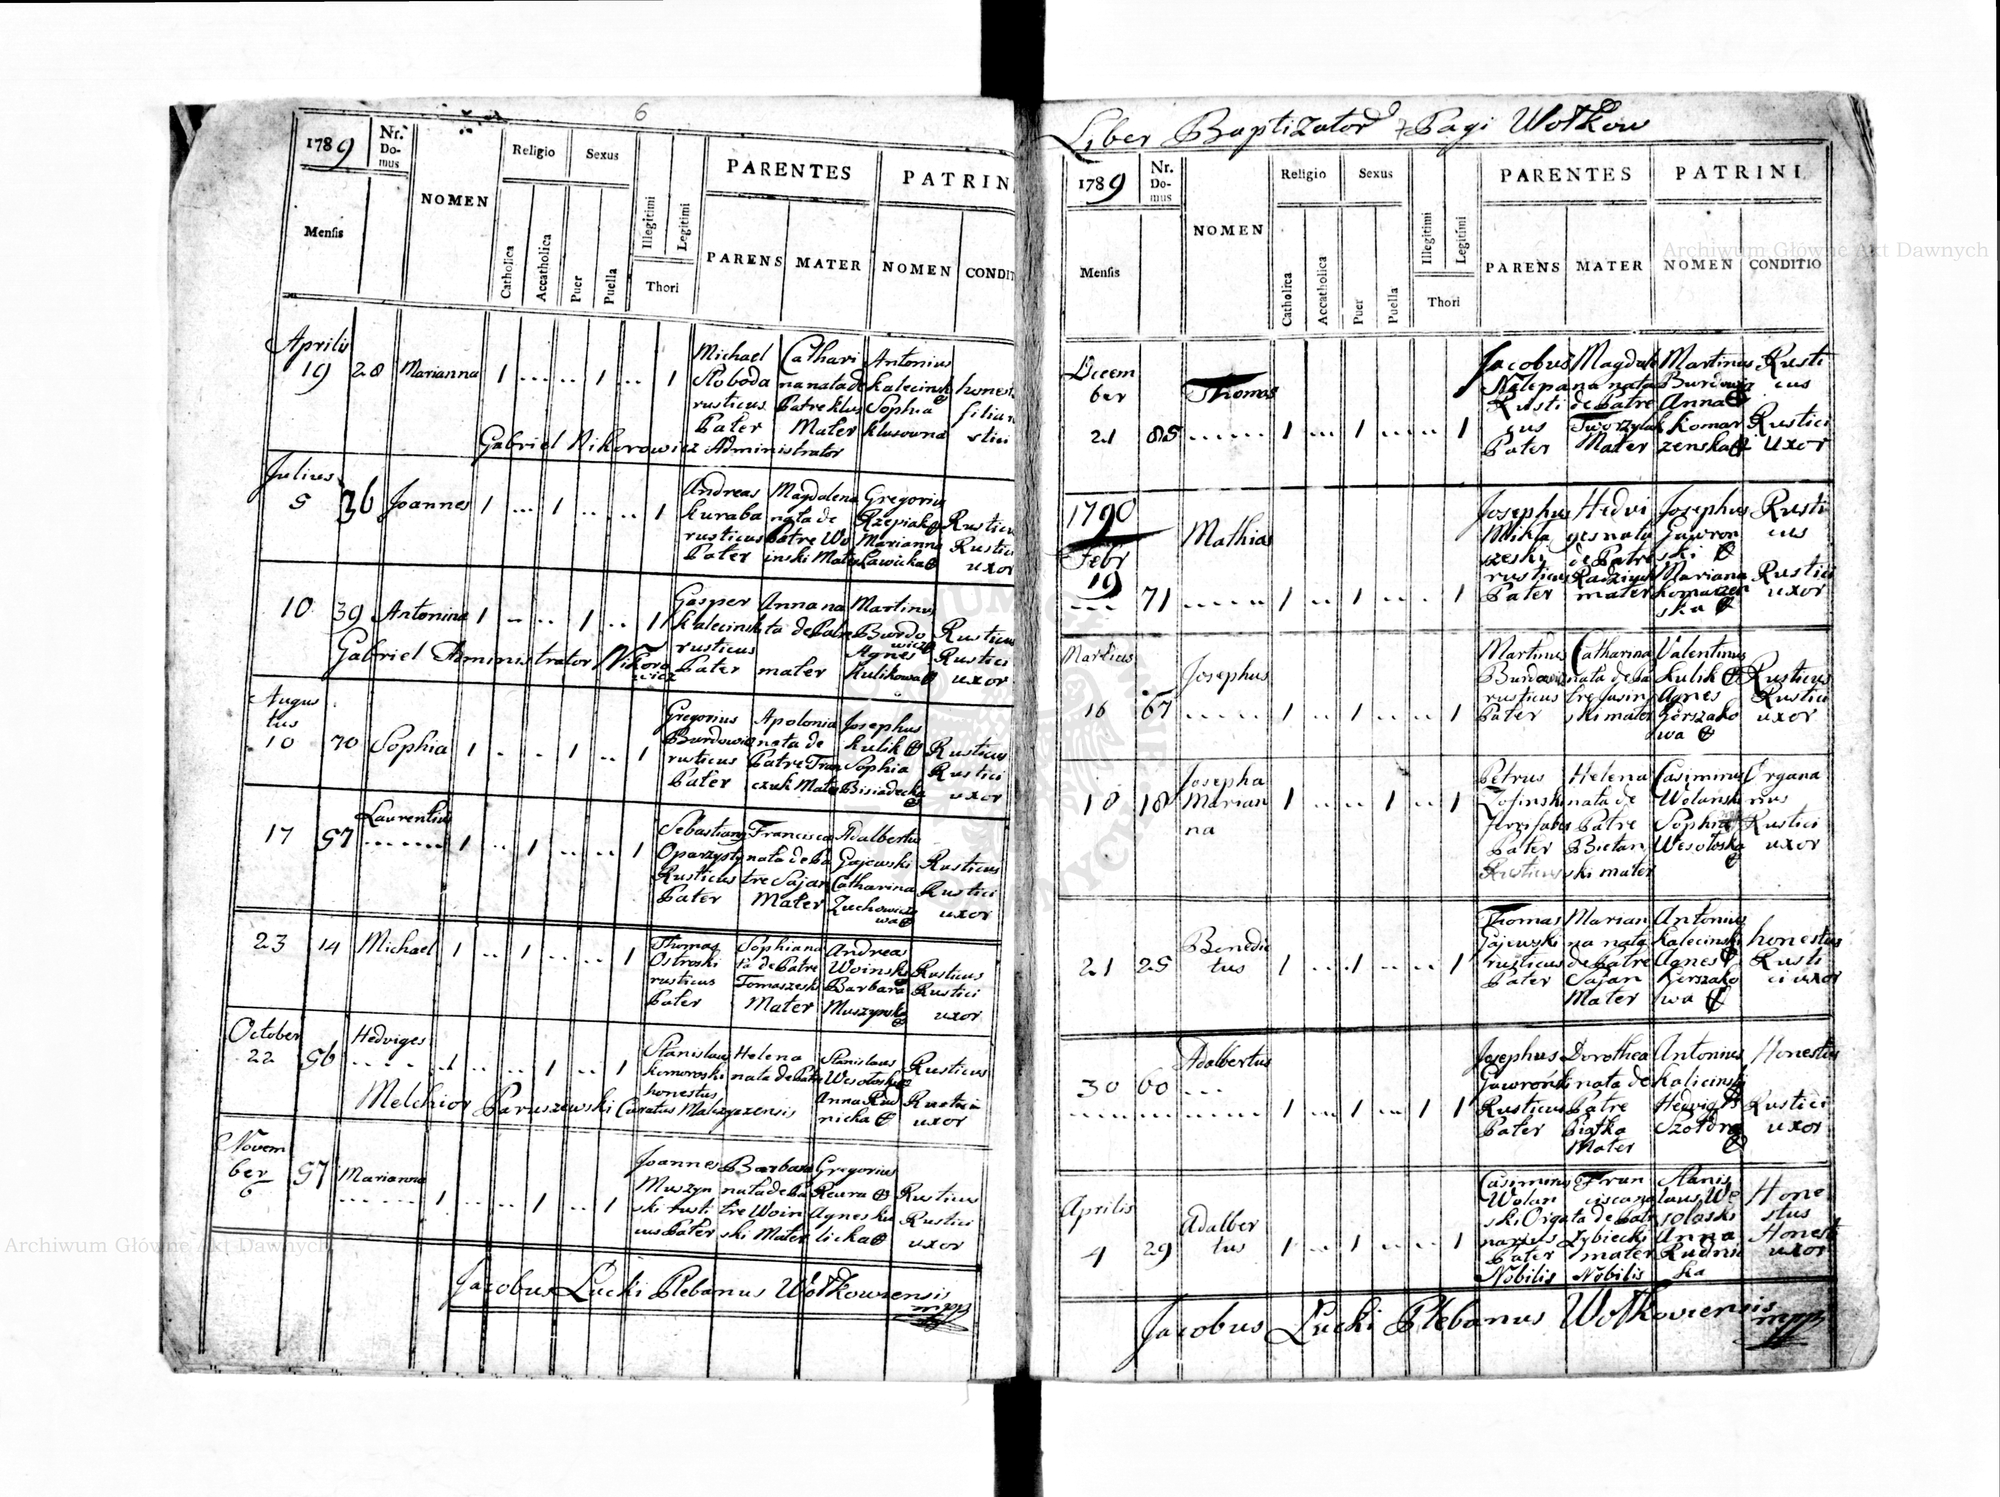 6
1789
Nr. Do-mus
NOMEN
Religio
Sexus
PARENTES
PATRIN
Mensis
Catholica
Accatholica
Puer
Puella
Illegitimi
Legitimi
Thori
PARENS
MATER
NOMEN
CONDIT
Aprilis 19 28 Marianna 1 1 1
Michael Sloboda rusticus Pater
Cathari na nata de Patre Klus Mater
Antonius Kalecinski Sophia Klusowna
honest filia rustici
Gabriel Nikorowicz Administrator
Julius 5 36 Joannes 1 1 1
Andreas Kuraba rusticus Pater
Magdalena nata de Patre Wo inski Mater
Gregorius Rzepiak Marianna Lawicka
Rusticus Rustici uxor
10 39 Antonina 1 1 1
Gasper Kalecinski rusticus Pater
Anna na ta de Patre mater
Martinus Burdo wicz Agnes Kulikowa
Rusticus Rustici uxor
Gabriel Administrator Nikoro wicz
Augus tus 10 70 Sophia 1 1 1
Gregorius Burdowicz rusticus Pater
Apolonia nata de Patre Fran czuk Mater
Josephus Kulik Sophia Bisiadecka
Rusticus Rustici uxor
17 57 Laurentius 1 1 1
Sebastianus Oparzysty Rusticus Pater
Francisca nata de Pa tre Sajan Mater
Adalbertus Gajewski Catharina Zuchowicz wa
Rusticus Rustici uxor
23 14 Michael 1 1 1
Thomas Ostroski rusticus Pater
Sophia na ta de Patre Tomaszeski Mater
Andreas Woinski Barbara Muszynska
Rusticus Rustici uxor
October 22 56 Hedviges 1 1 1
Stanislaus Komoroski honestus
Helena nata de Patre
Stanislaus Wesołoski Anna Rud nicka
Rusticus Rustici uxor
Melchior Paruszewski Curatus
Novem ber 6 57 Marianna 1 1 1
Joannes Muszyn ski rusti cus Pater
Barbara nata de Pa tre Woin ski Mater
Gregorius Reura Agnes Ku licka
Rusticus Rustici uxor
Jacobus Lucki Plebanus Wołkowiensis mpp
Liber Baptizator 7 Pagi Wołkow
1789
Nr. Do-mus
NOMEN
Religio
Sexus
PARENTES
PATRINI
Mensis
Catholica
Accatholica
Puer
Puella
Illegitimi
Legitimi
Thori
PARENS
MATER
NOMEN
CONDITIO
Decem ber 21 85 Thomas 1 1 1
Jacobus Nalepa Rusti cus Pater
Magdale na nata de Patre Tworzylak Mater
Martinus Burdowicz Anna Komar zenska
Rusti cus Rustici Uxor
1790 Febr 19 71 Mathias 1 1 1
Josephus Mikla szeski rusticus Pater
Hedvi ges nata de Patre Radzisz mater
Josephus Gawron ski Mariana Komarzen ska
Rusti cus Rustici uxor
Martius 16 67 Josephus 1 1 1
Martinus Burdowicz rusticus Pater
Catharina nata de Pa tre Jusin ski mater
Valentinus Kulik Agnes Kerszako wa
Rusticus Rustici uxor
18 18 Josepha Marian na 1 1 1
Petrus Zofinski Pater Rusticus
Helena nata de Patre Bielan ski mater
Casimirus Wolanski Sophia Wesołoska
Organa rius Rustici uxor
21 25 Benedic tus 1 1 1
Thomas Gajewski rusticus Pater
Marian na nata de Patre Sajan Mater
Antonius Kalecinski Agnes Kerszako wa
honestus Rusti ci uxor
30 60 Adalbertus 1 1 1 1
Josephus Gawroński Rusticus Pater
Dorothea nata de Patre Piątka Mater
Antonius Kalicinski Hedvigis Szołdra
Honestus Rustici uxor
Aprilis 4 29 Adalber tus 1 1 1
Casimirus Wolan ski Orga narius Pater Nobilis
Fran cisca na ta de Patre Zybiecki mater Nobilis
Stanis laus We soloski Anna Rudnic ka
Hone stus Honesti uxor
Jacobus Lucki Plebanus Wołkowiensis mpp
Archiwum Główne Akt Dawnych
Archiwum Główne Akt Dawnych